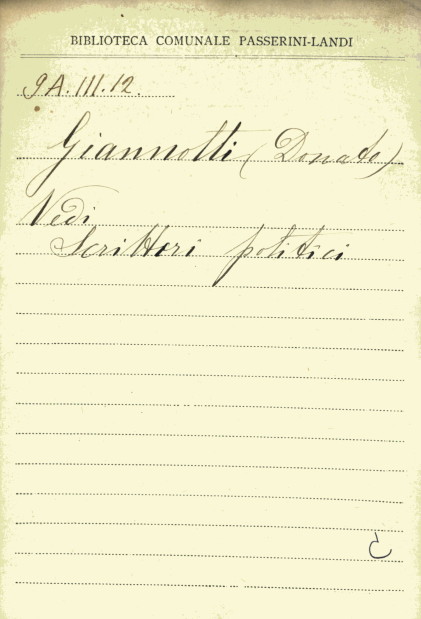 BIBLIOTECA COMUNALE PASSERINI-LANDI
9A.III.12.
Giannotti (Donato)
Vedi
Scrittori politici